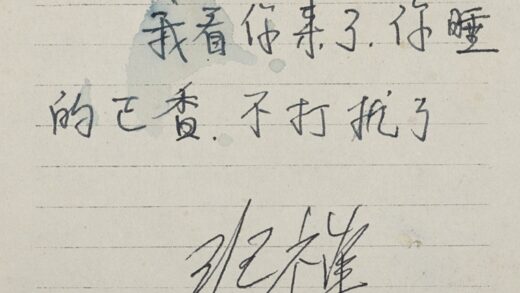 我看你来了.你睡
的正香.不打扰了
班